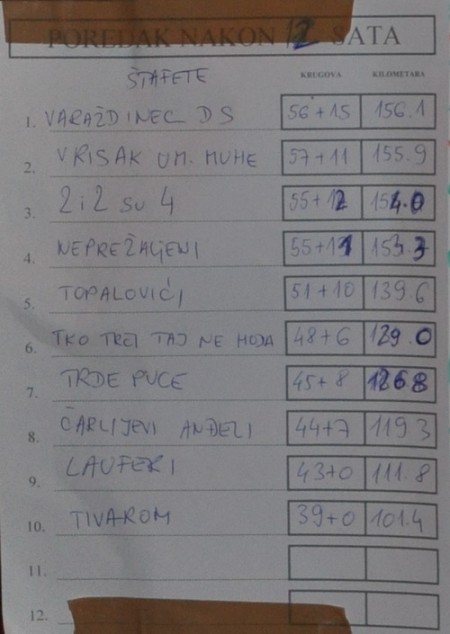 POREDAK NAKON 12 SATA
ŠTAFETE KRUGOVA KILOMETARA
1. VARAŽDINEC DS 56+15 156.1
2. VRISAK UM. MUHE 57+11 155.9
3. 2 i 2 su 4 55+12 154.0
4. NEPREŽALJENI 55+11 153.3
5. TOPALOVIĆI 51+10 139.6
6. TKO TRČI TAJ NE HODA 48+6 129.0
7. TRDE PUCE 45+8 126.8
8. ČARLIJEVI ANĐELI 44+7 119.3
9. LAUFERI 43+0 111.8
10. TIVAROM 39+0 101.4
11.
12.